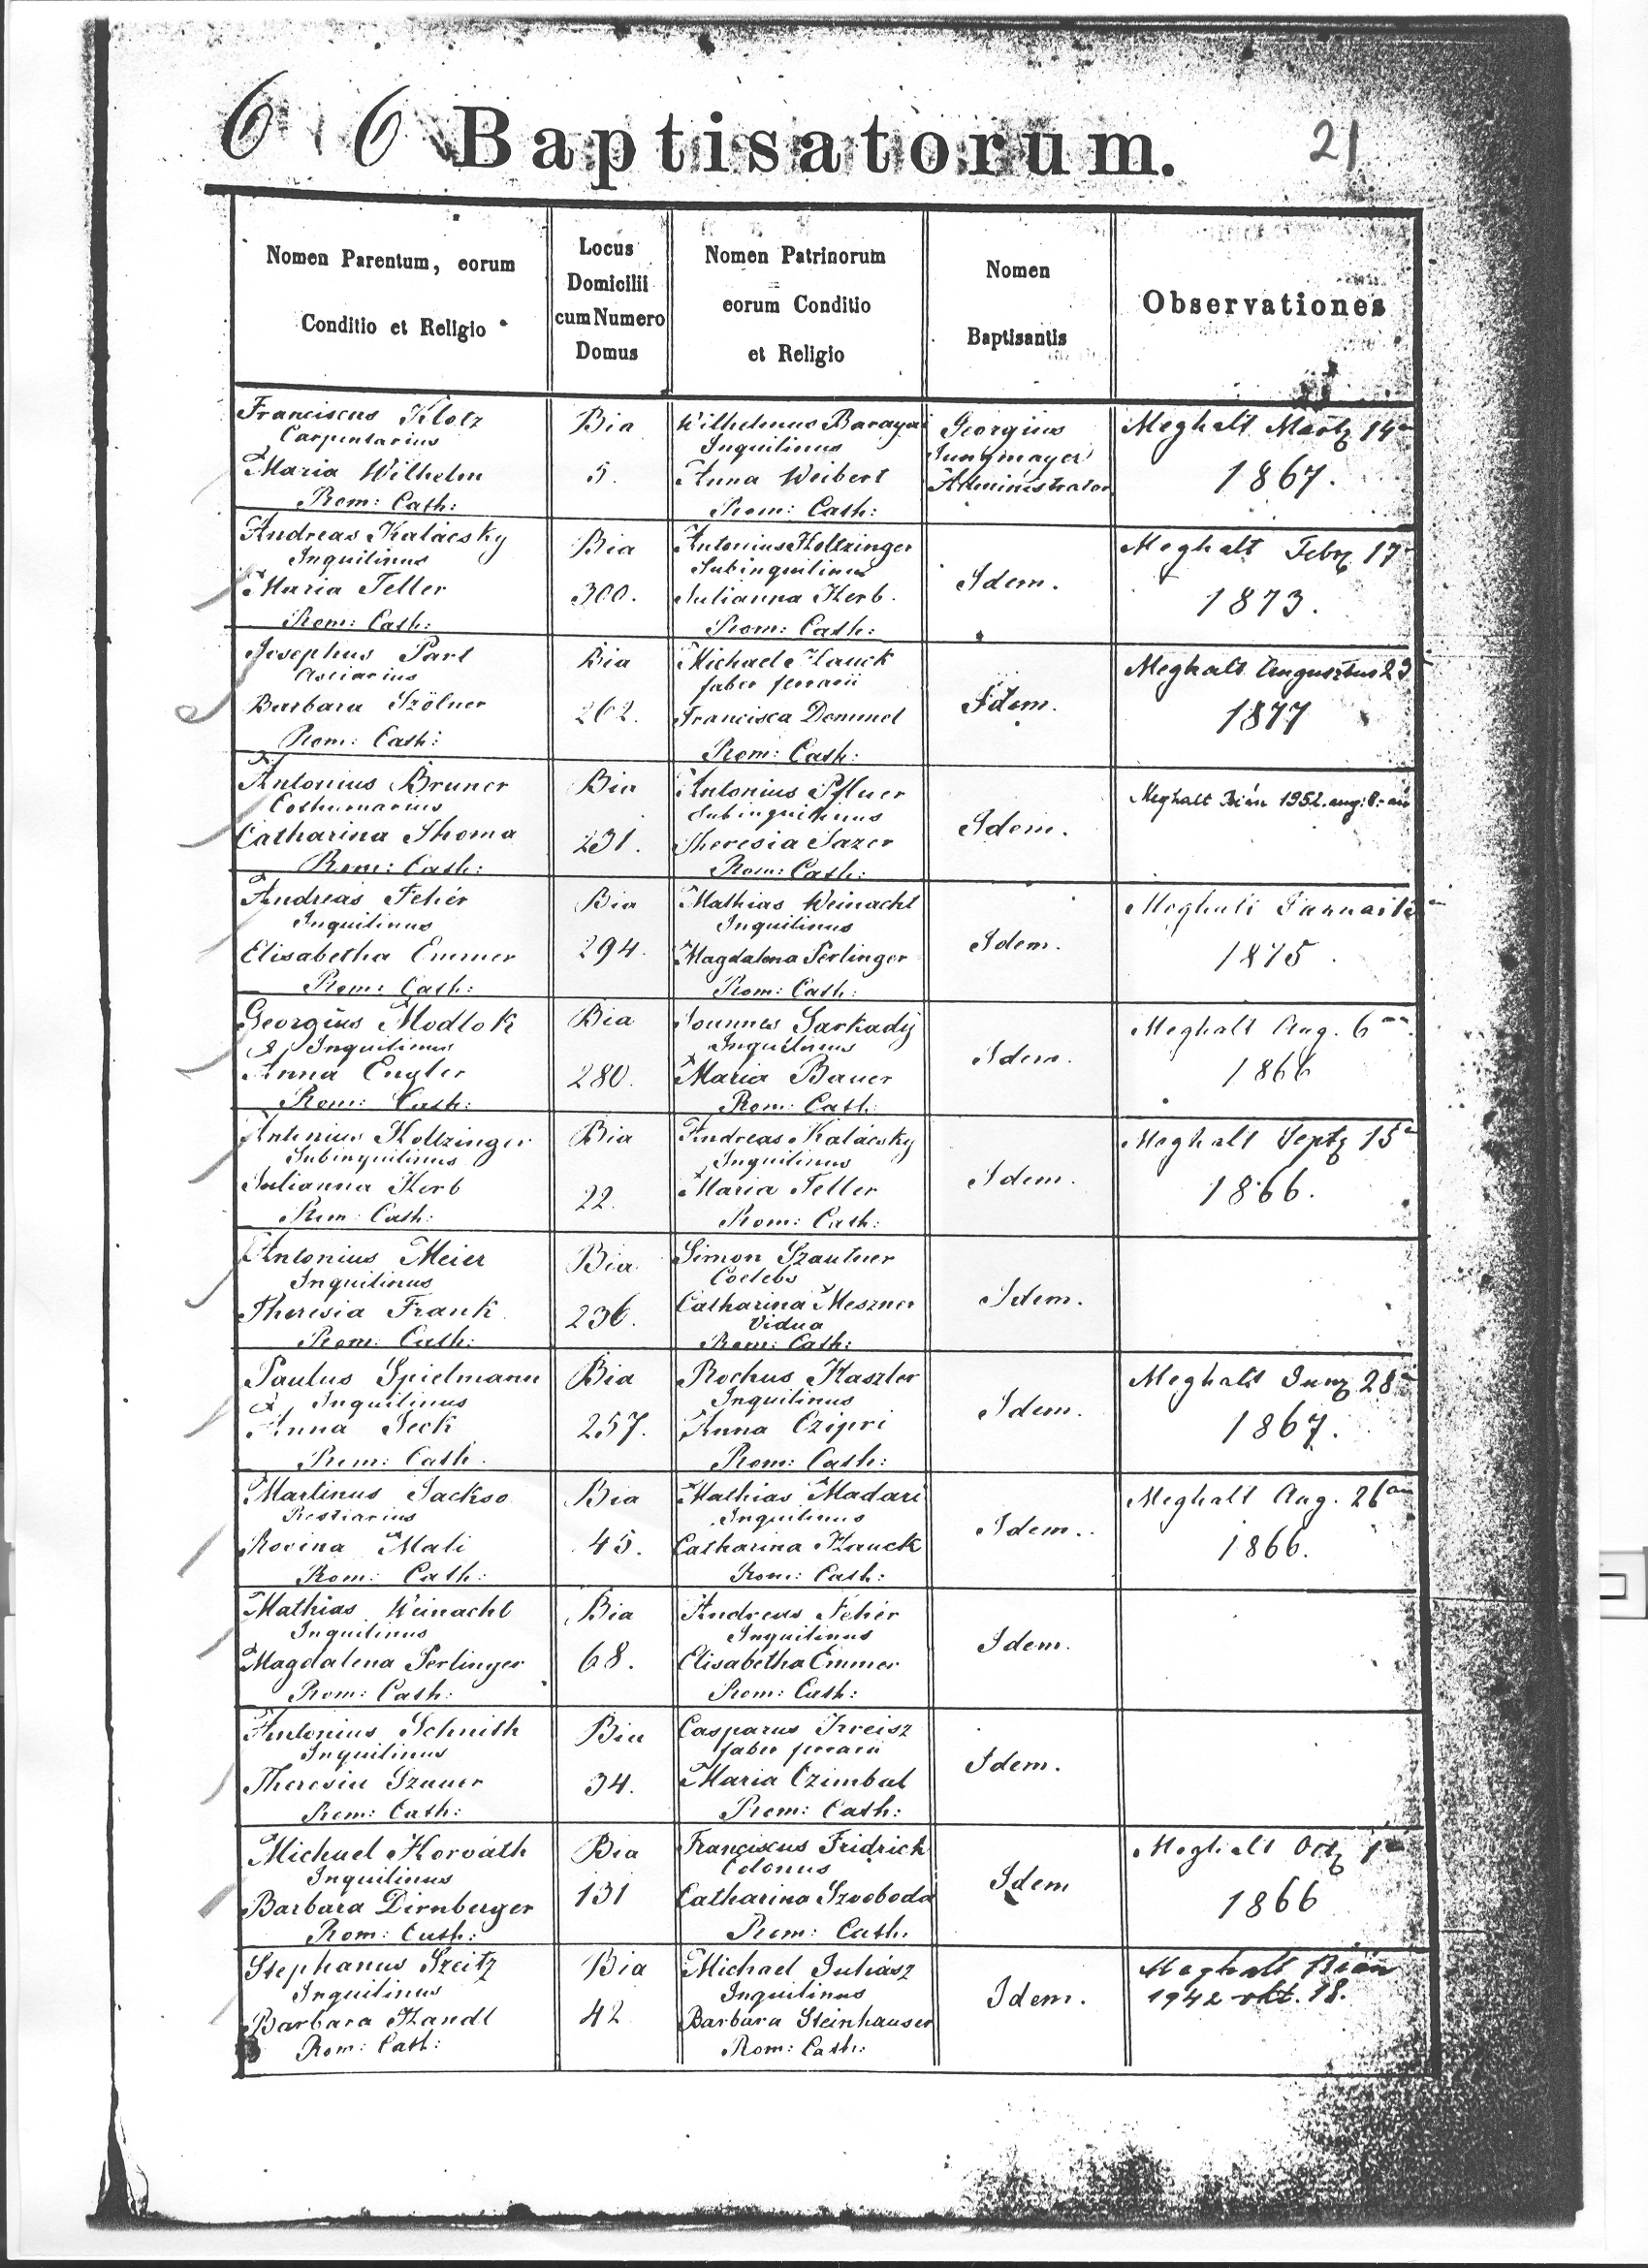 6 6 Baptisatorum. 21
Nomen Parentum, eorum
Conditio et Religio
Locus
Domicilii
cum Numero
Domus
Nomen Patrinorum
eorum Conditio
et Religio
Nomen
Baptisantis
Observationes
Franciscus Klotz
Carpentarius
Maria Wilhelm
Rom: Cath:
Bia
5.
Wilhelmus Baranyai
Inquilinus
Anna Weibert
Rom: Cath:
Georgius
Jungmayer
Administrator
Meghalt Martz 14
1867.
Andreas Kalácsky
Inquilinus
Maria Teller
Rom: Cath:
Bia
300.
Antonius Holtzinger
Subinquilinus
Julianna Kerb.
Rom: Cath:
Idem.
Meghalt Febr 17
1873.
Josephus Parl
Barbara Szölner
Rom: Cath:
Bia
262.
Michael Hauck
faber ferrarii
Francisca Demmel
Rom: Cath:
Idem.
Meghalt Augusztus 23
1877
Antonius Bruner
Cothurnarius
Catharina Thoma
Rom: Cath:
Bia
231.
Antonius Pfluer
Subinquilinus
Theresia Sazer
Rom: Cath:
Idem.
Meghalt Bián 1952. aug: 8.-án
Andreas Fehér
Inquilinus
Elisabetha Emmer
Rom: Cath:
Bia
294.
Mathias Weinacht
Inquilinus
Magdalena Perlinger
Rom: Cath:
Idem.
Meghalt
1875
Georgius Modlok
Inquilinus
Anna Engler
Rom: Cath:
Bia
280.
Joannes Sarkadÿ
Inquilinus
Maria Bauer
Rom: Cath:
Idem.
Meghalt Aug. 6
1866
Antonius Holtzinger
Subinquilinus
Julianna Kerb
Rom: Cath:
Bia
22.
Andreas Kalácsky
Inquilinus
Maria Teller
Rom: Cath:
Idem.
Meghalt Sept 15
1866.
Antonius Meier
Inquilinus
Theresia Frank
Rom: Cath:
Bia
236.
Simon Szautner
Coelebs
Catharina Meszner
Vidua
Rom: Cath:
Idem.
Paulus Spielmann
Inquilinus
Anna Jeck
Rom: Cath.
Bia
257.
Rochus Kaszler
Inquilinus
Anna Czipri
Rom: Cath:
Idem.
Meghalt Jun 28
1867.
Martinus Jackso
Restiarius
Rovina Mali
Rom: Cath:
Bia
45.
Mathias Madari
Inquilinus
Catharina Hauck
Rom: Cath:
Idem.
Meghalt Aug. 26
1866.
Mathias Weinacht
Inquilinus
Magdalena Perlinger
Rom: Cath:
Bia
68.
Andreas Fehér
Inquilinus
Elisabetha Emmer
Rom: Cath:
Idem.
Antonius Schnith
Inquilinus
Theresia Szauer
Rom: Cath:
Bia
34.
Casparus Kreisz
faber ferrarii
Maria Czimbal
Rom: Cath:
Idem.
Michael Horváth
Inquilinus
Barbara Dirnberger
Rom: Cath:
Bia
131
Franciscus Fridrich
Colonus
Catharina Szvoboda
Rom: Cath.
Idem
Meghalt Oct 1
1866
Stephanus Szeitz
Inquilinus
Barbara Handl
Rom: Cath:
Bia
42
Michael Juhász
Inquilinus
Barbara Steinhauser
Rom: Cath:
Idem.
Meghalt Bián
1942 okt. 18.